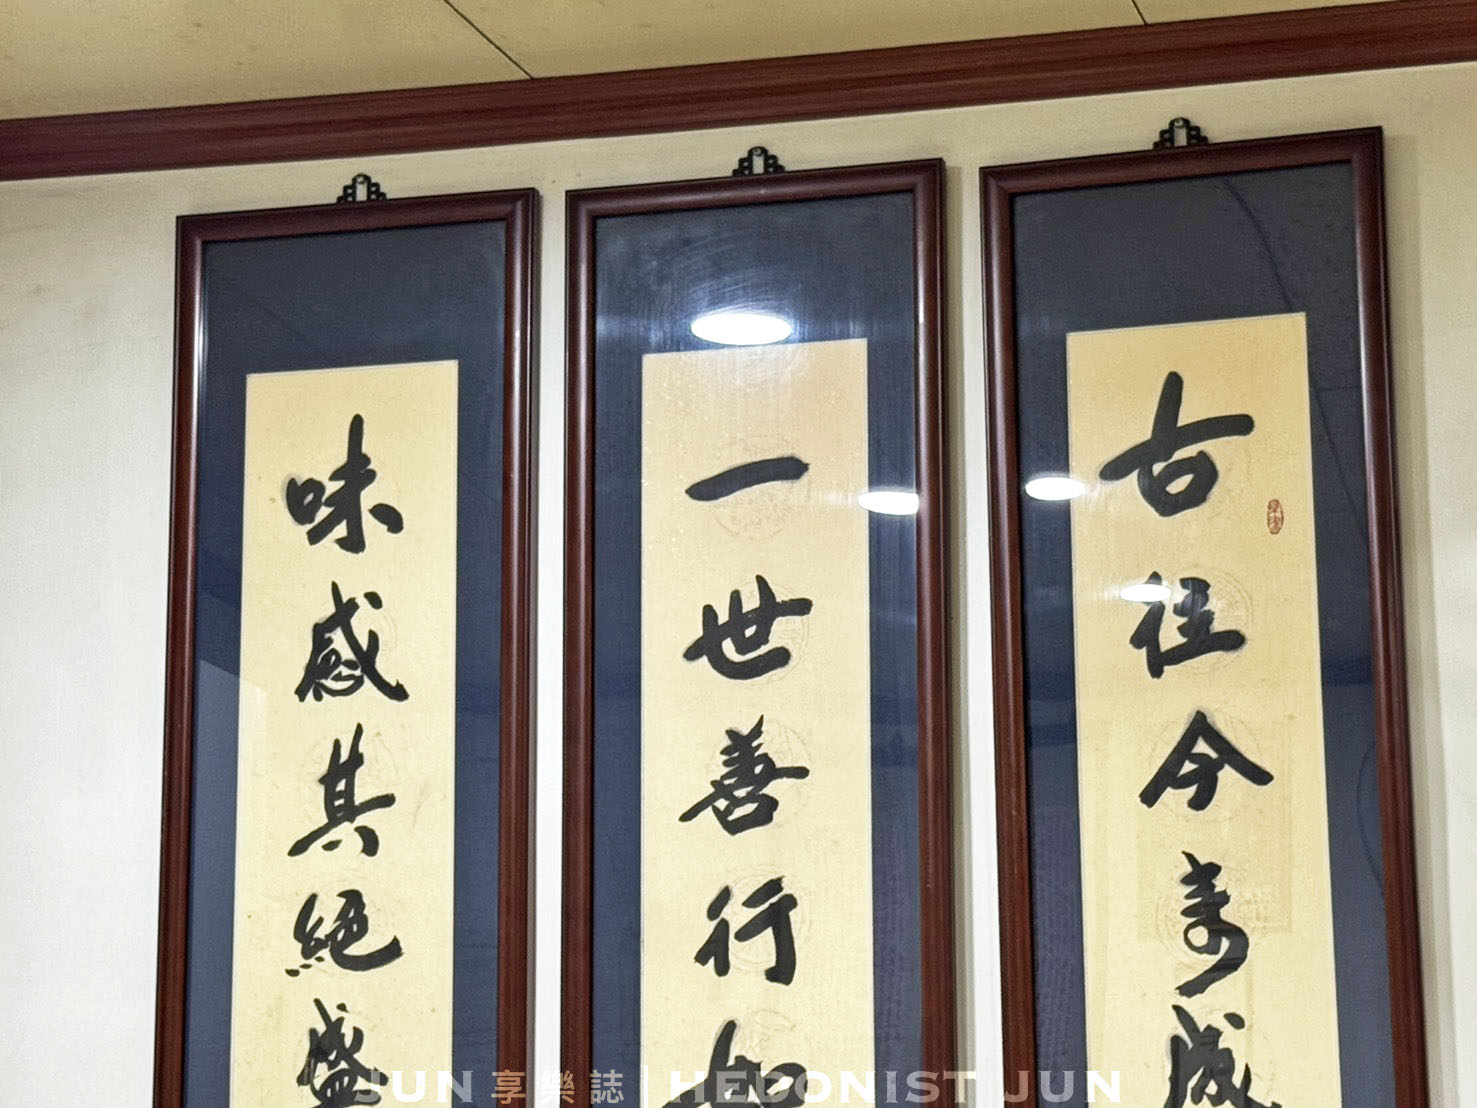 古往今來
一世善行如
味感其絕盛
JUN 享樂誌 | HEDONIST JUN